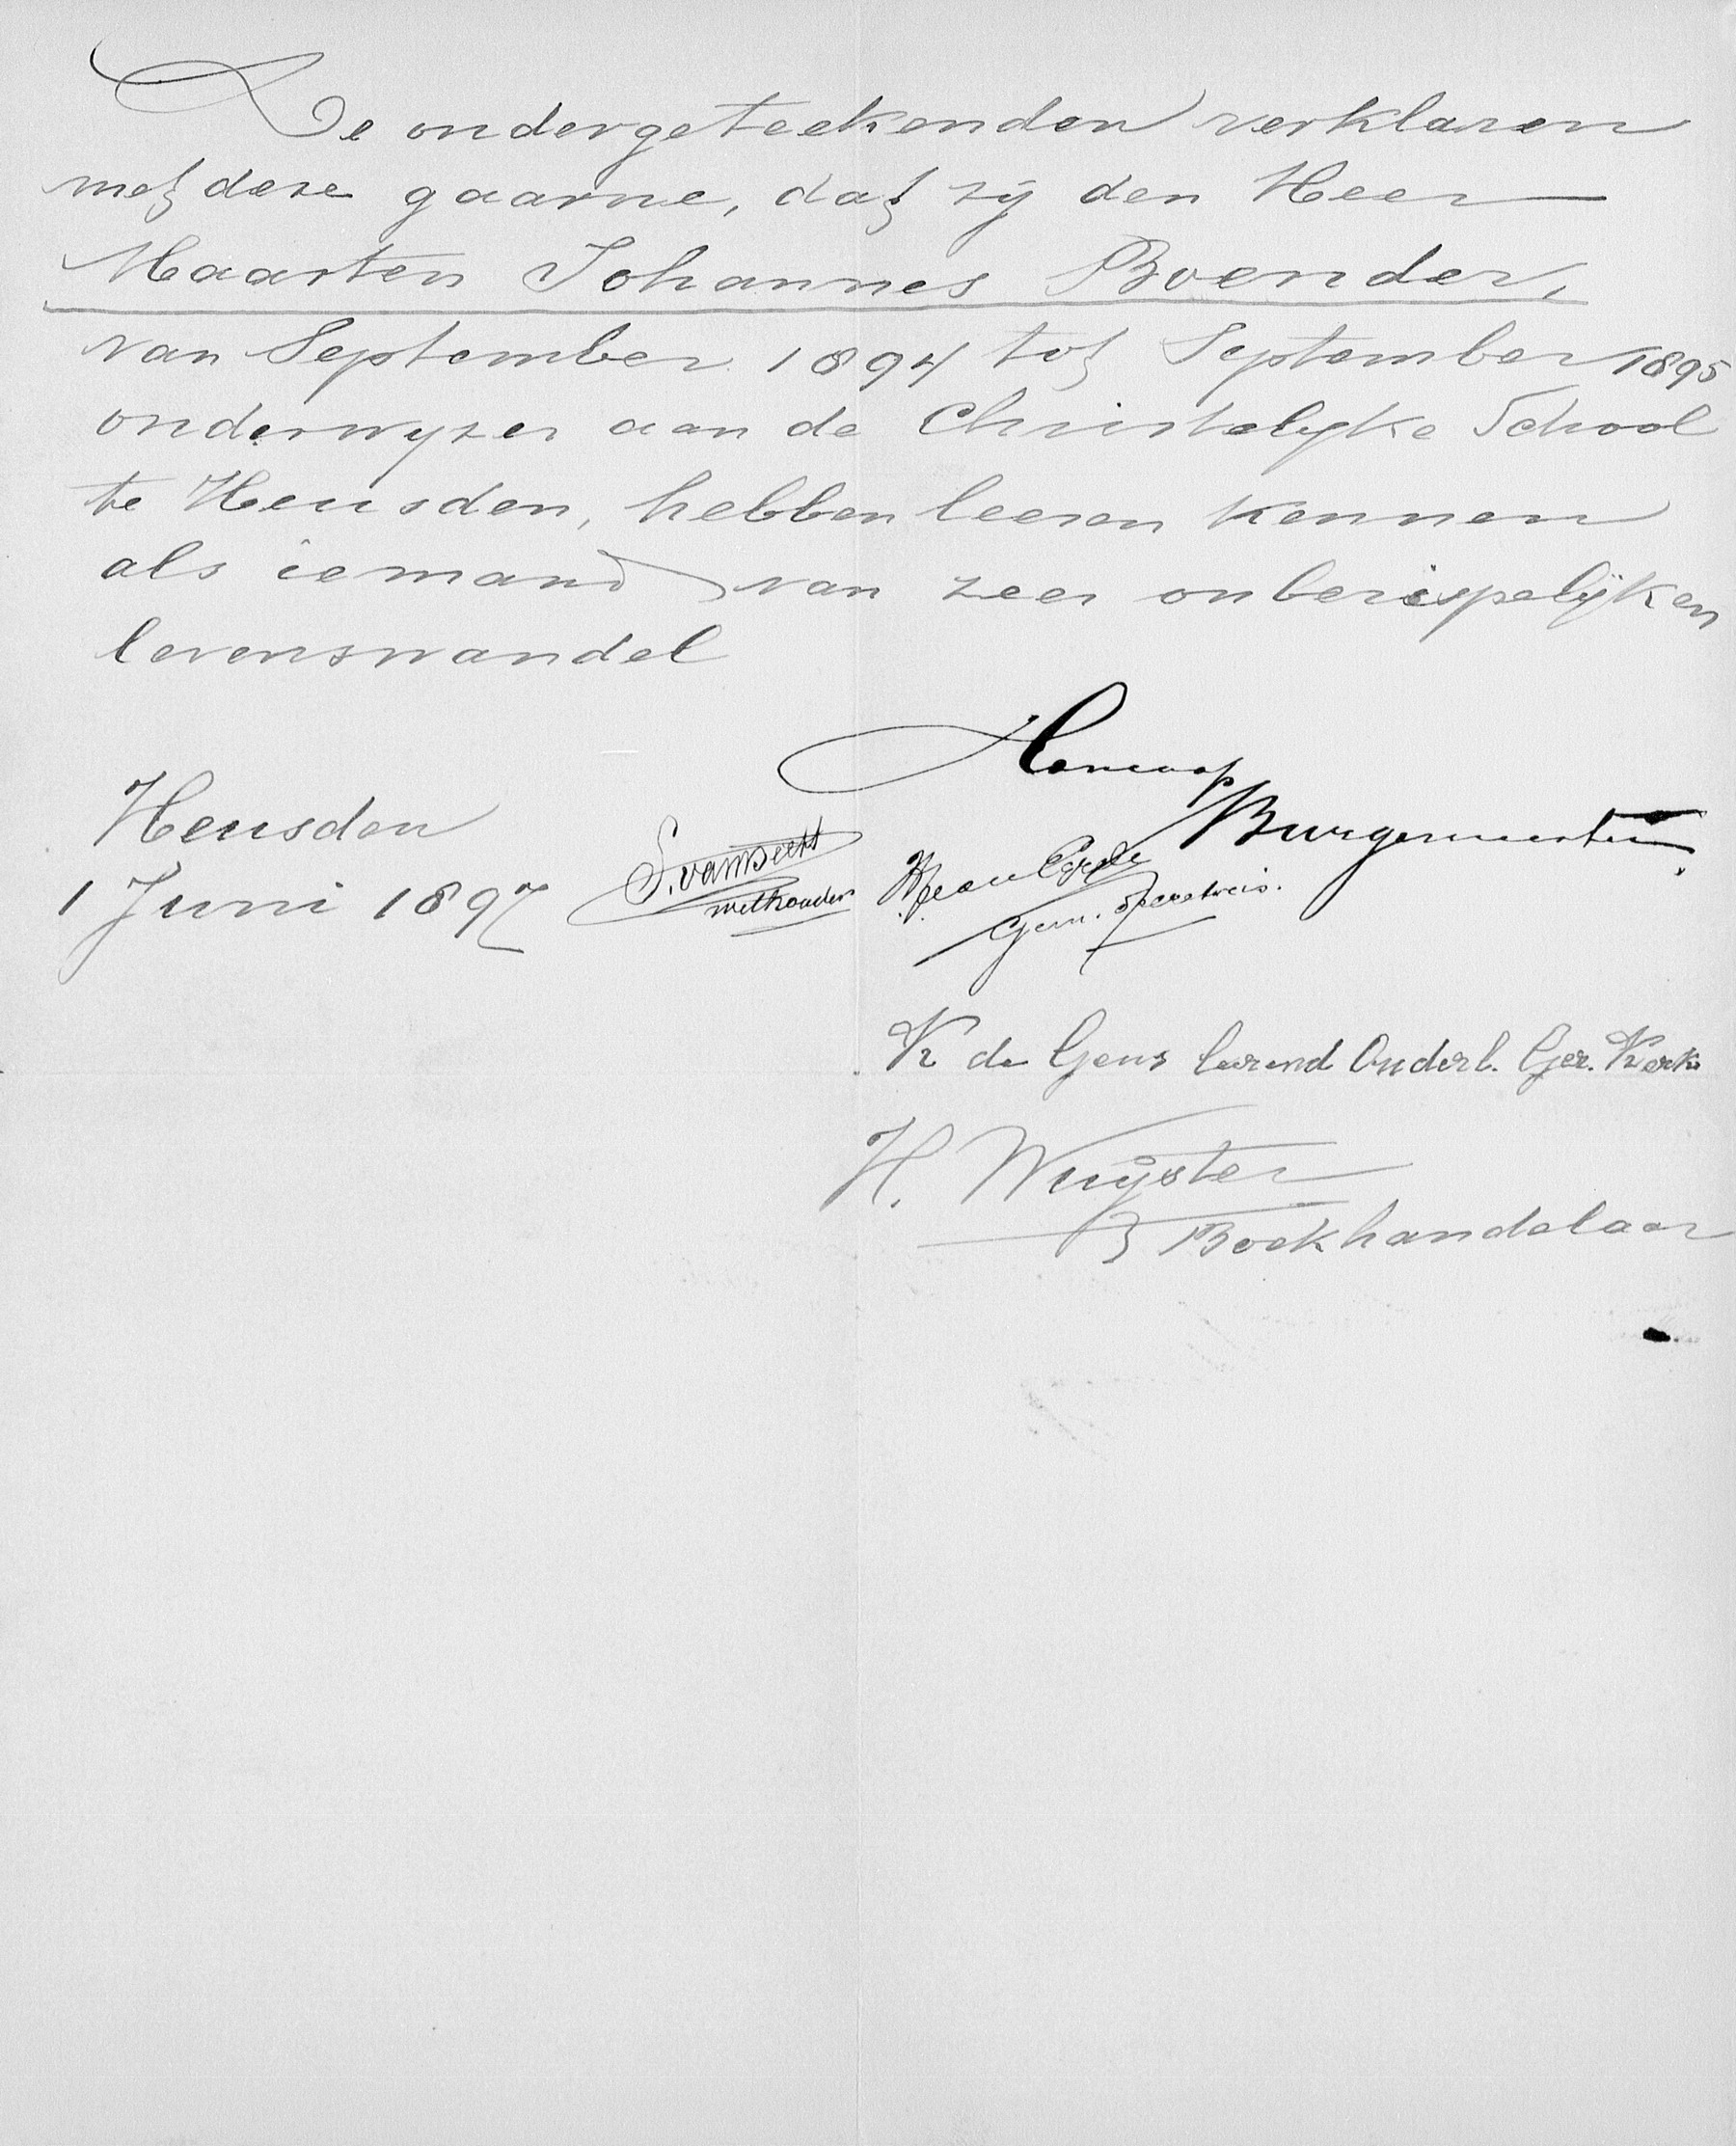 De ondergeteekenden verklaren
met deze gaarne, dat zij den Heer
Maarten Johannes Boender,
van September 1894 tot September 1895
onderwyzer aan de Christelyke School
te Heusden, hebben leeren kennen
als iemand van zeer onberispelijken
levenswandel
Honcoop
Burgemeester
Heusden
1 Juni 1897
wethouder
Gem.
K de Geus leerend Ouderl. Ger. Kerk
H. Wuijster
Boekhandelaar